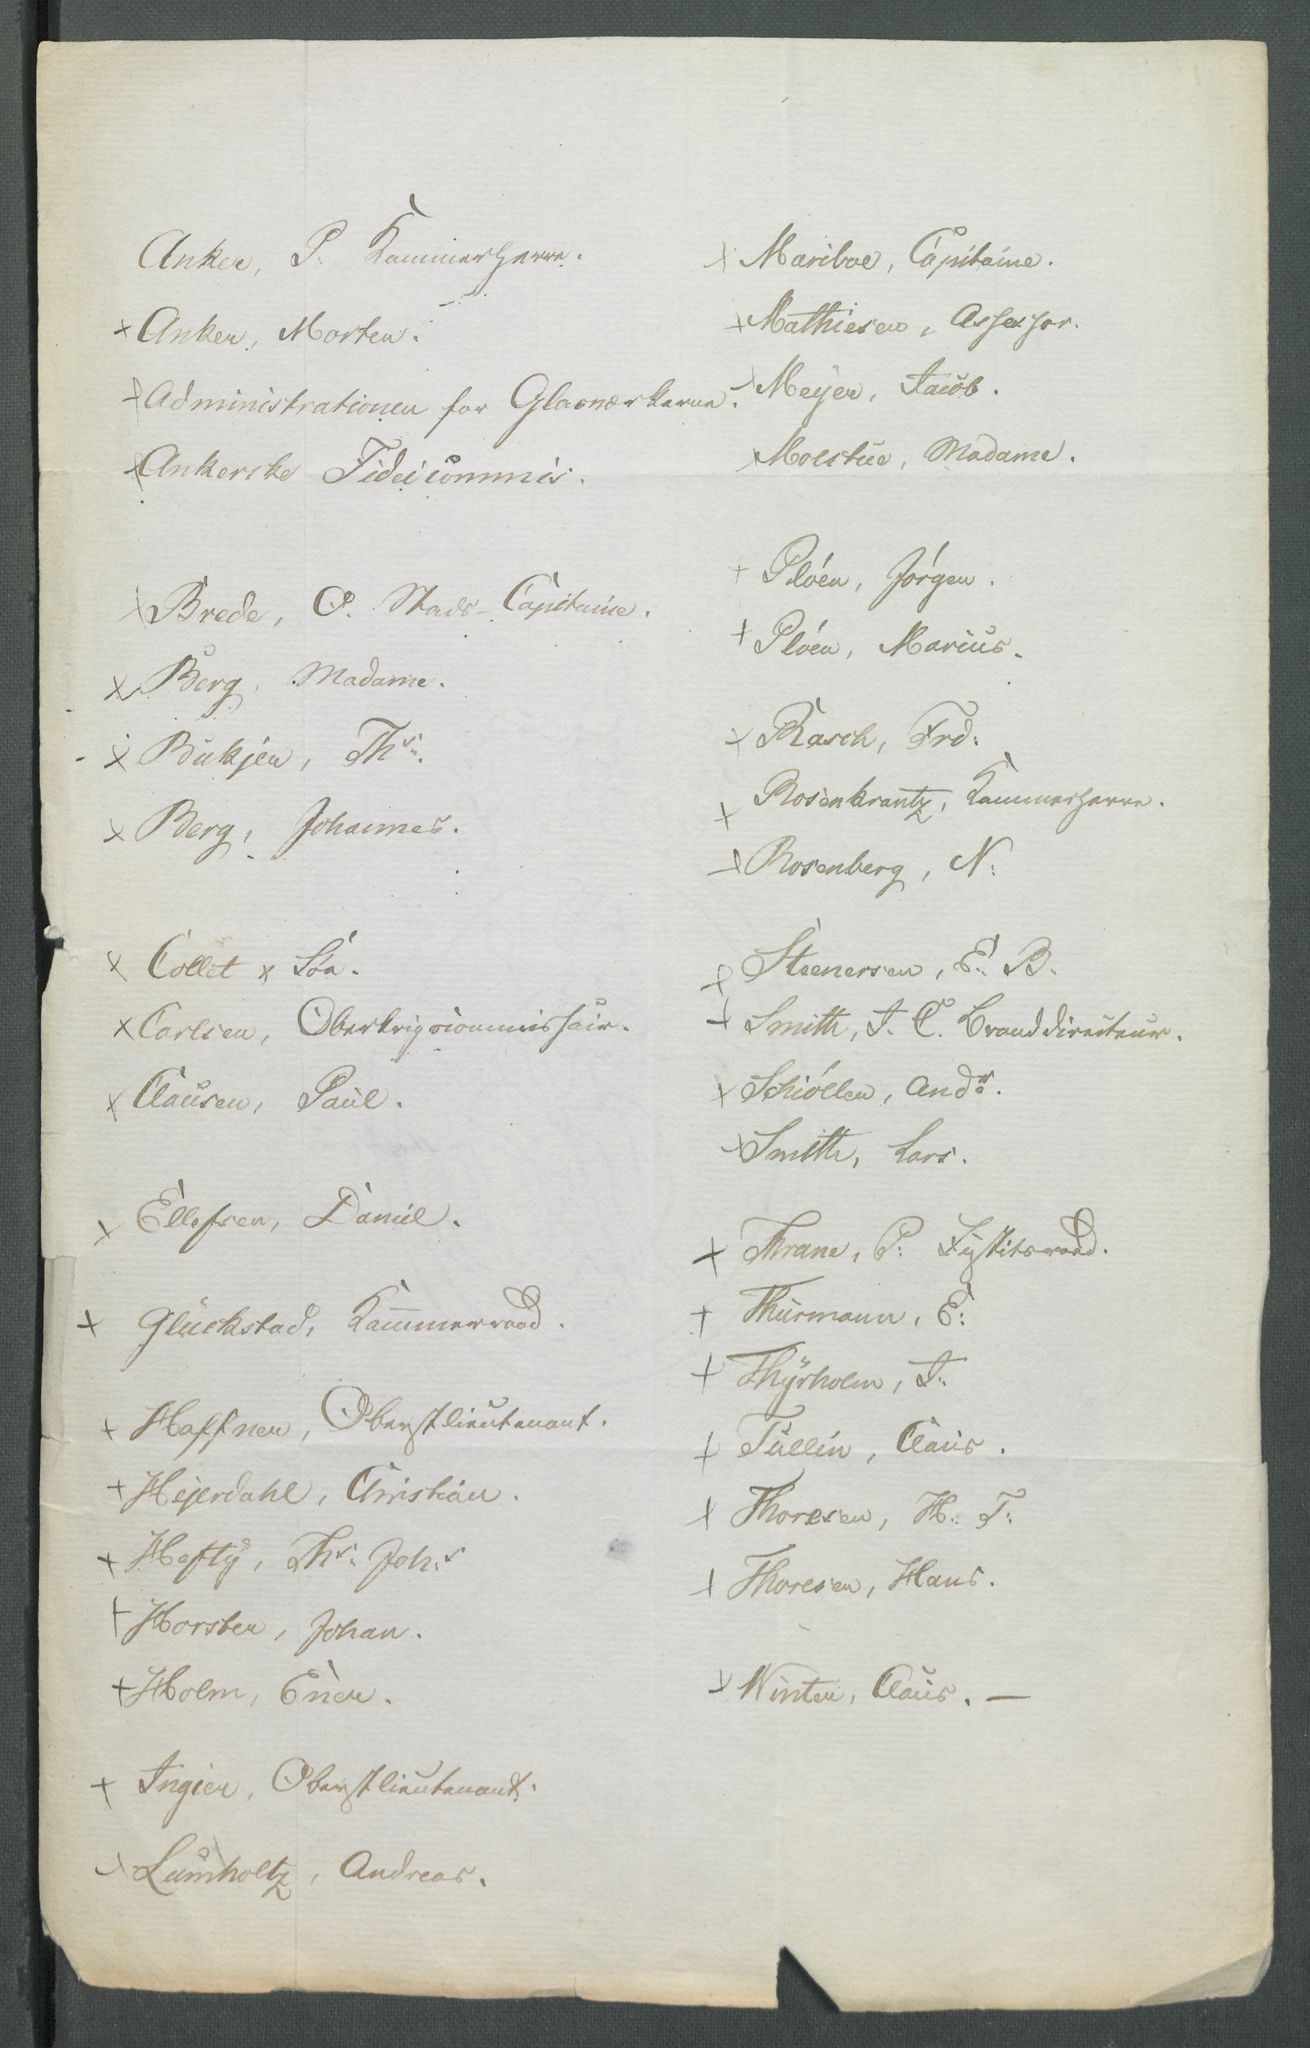 Anker, P. Kammerherre.
× Anker, Morten.
× Administrationen for Glasværkerne.
× Ankerske Fideicommis.
× Brede, O. Stads-Capitaine.
× Berg, Madame.
× Bukjen, Ths:
× Berg, Johannes.
× Collet & Søn.
× Carlsen, Oberkrigscommissair.
× Clausen, Paul.
× Ellefsen, Daniel.
× Glückstad, Kammerraad.
× Haffner, Oberstlieutenant.
× Hejerdahl, Christian.
× Hefty, Ths: Joh:s
× Horster, Johan.
× Holm, Ener.
× Ingier, Oberstlieutenant.
× Lumholtz, Andreas.
× Mariboe, Capitaine.
× Mathiesen, Assessor.
× Meyer, Jacob.
× Moestue, Madame.
× Plöen, Jörgen.
× Plöen, Marius.
× Rasch, Frd:
× Rosenkrantz, Kammerherre.
× Rosenberg, N:
× Steenersen, E: B.
× Smith, J. C. Branddirecteur.
× Schiöllen, Ands.
× Smith, Lars.
× Thrane, P: Justitsraad.
× Thurmann, E:
× Thyrholm, J:
× Tullin, Claus.
× Thoresen, H: T:
× Thoresen, Hans.
× Winter, Claus. —